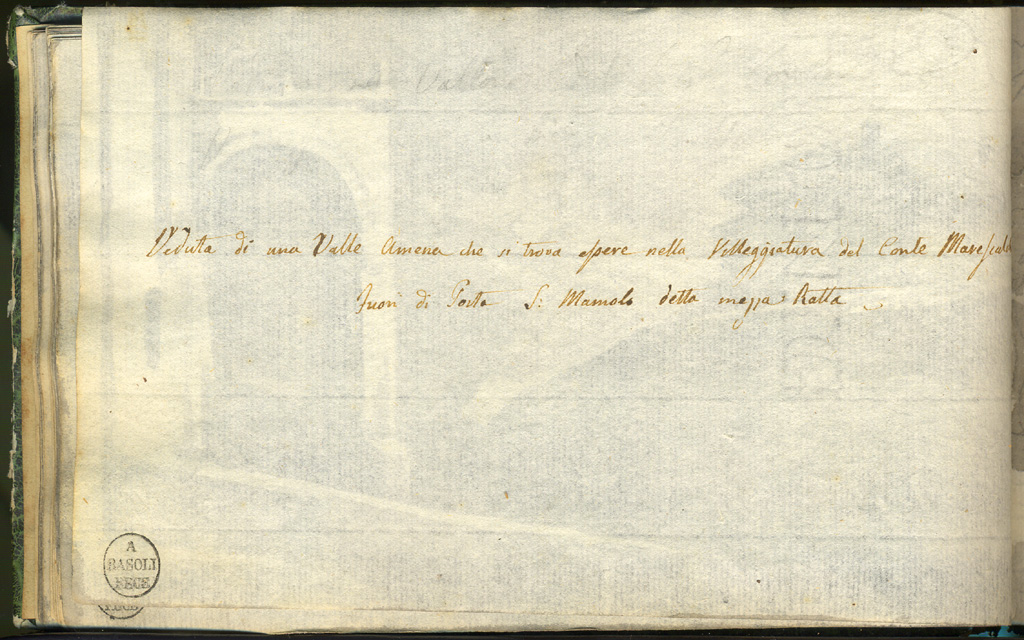 Veduta di una Valle Amena che si trova essere nella Villeggiatura del Conte Marescal
fuori di Porta S: Mamolo detta mezza Ratta
A
BASOLI
FECE